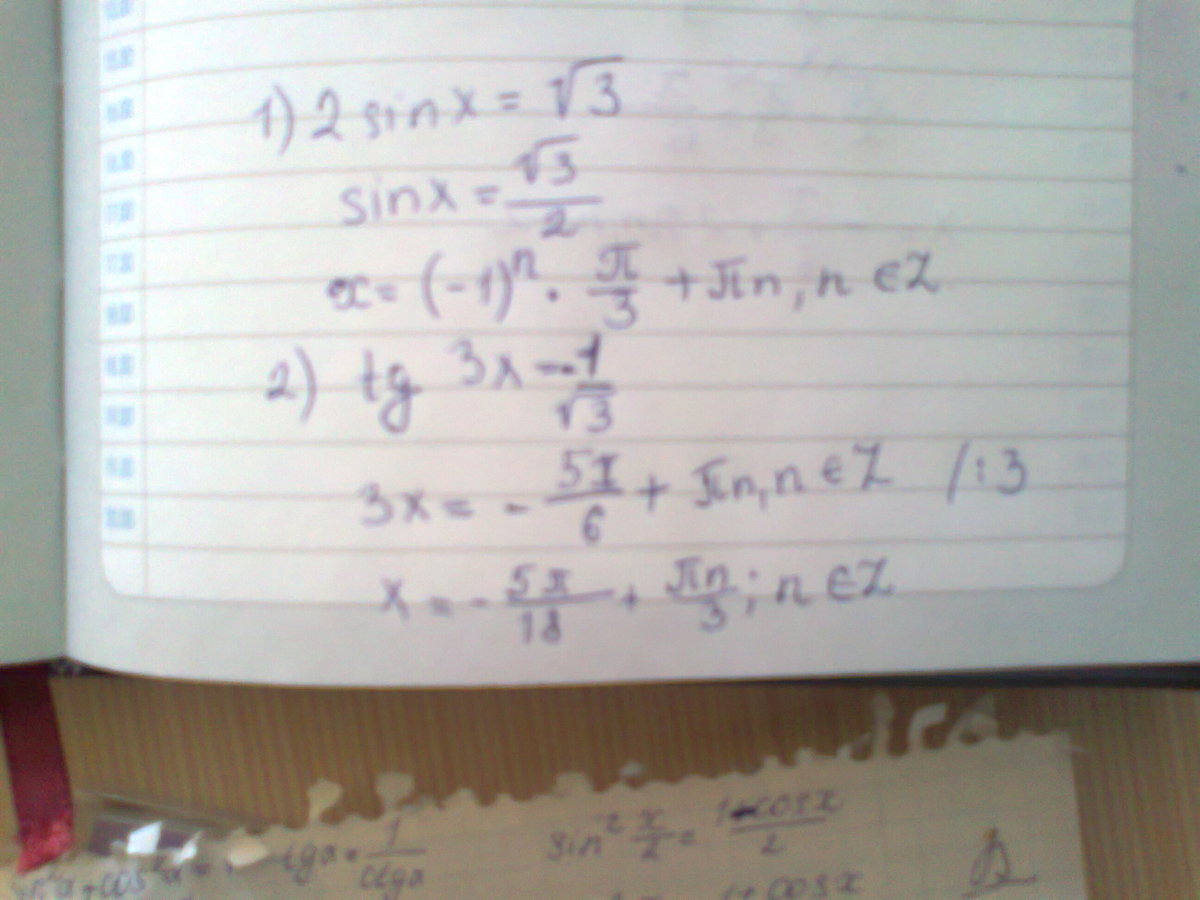 1) 2 sin x = √3
sin x = √3/2
x = (-1)ⁿ · π/3 + πn, n ∈ Z
2) tg 3x -1/√3
3x = - 5π/6 + πn, n ∈ Z /:3
x = - 5π/18 + πn/3; n ∈ Z
tga = 1/ctga sin² x/2 = 1-cosx/2
+cos²